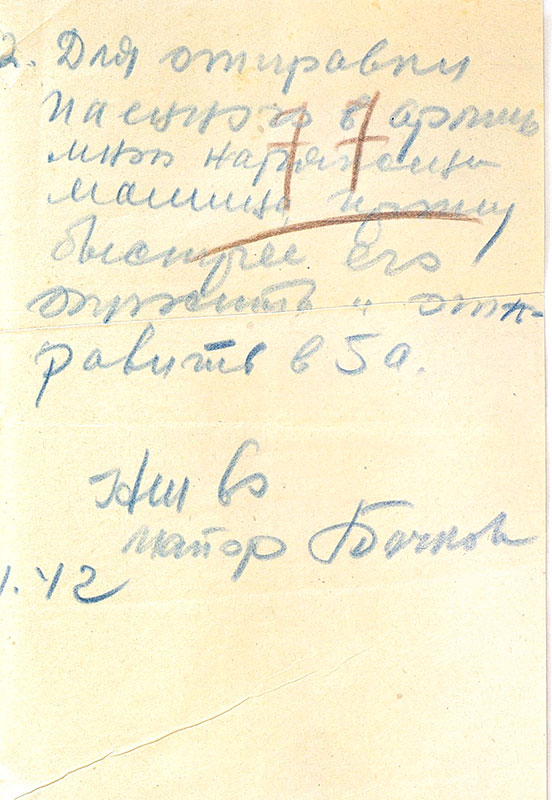 2. Для отправки
пленного в армию
мною наряжена
машина, прошу
быстрее его
одеть и отп-
равить в 5а.
77
майор Бочков
.42